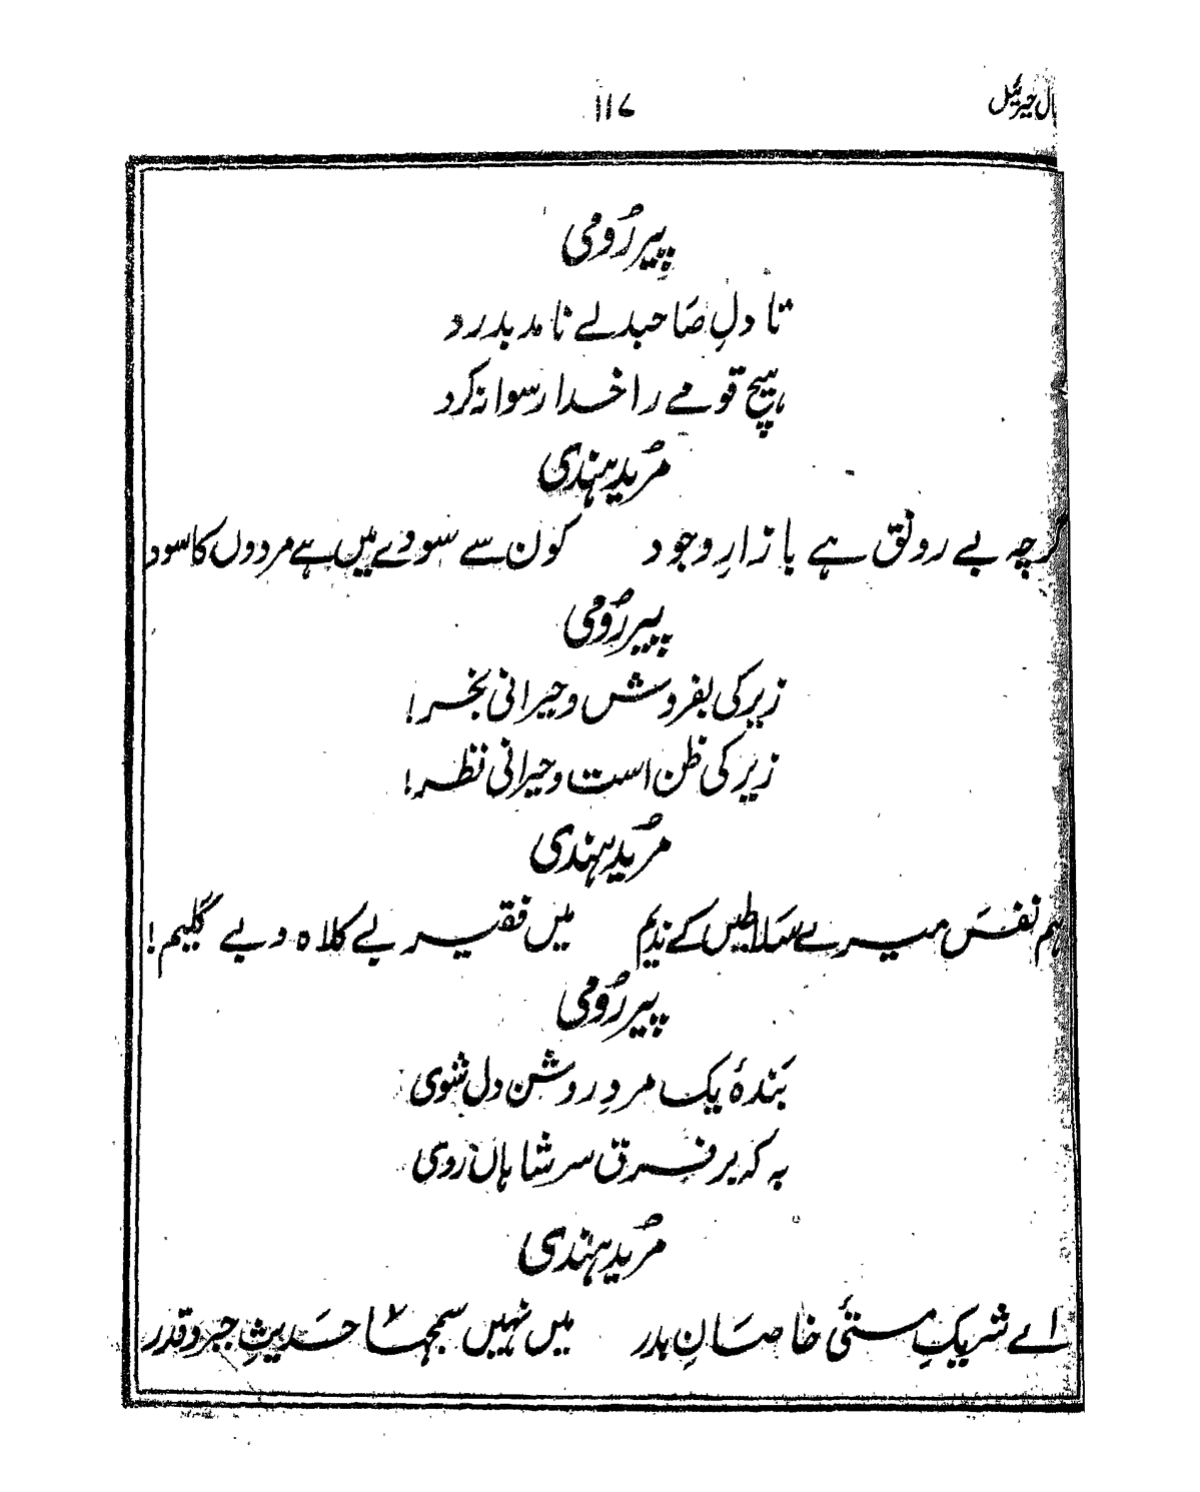 بال جبرئیل
۱۱۷
پیرِ رُومی
تا دلِ صاحبدلے نامد بدرد
ہیچ قومے را خدا رسوا نہ کرد
مُریدِ ہندی
گرچہ بے رونق ہے بازارِ وجود    کون سے سودے میں ہے مردوں کا سود
پیرِ رُومی
زیرکی بفروش و حیرانی بخر!
زیرکی ظن است و حیرانی نظر!
مُریدِ ہندی
ہم نفَس میرے سَلاطیں کے ندیم    میں فقیر بے کلاہ و بے گلیم!
پیرِ رُومی
بَندۂ یک مردِ روشن دل شوی
بہ کہ بر فرق سر شاہاں روی
مُریدِ ہندی
اے شریکِ مستئ خاصَانِ بدر    میں نہیں سمجھا حَدیثِ جبر و قدر